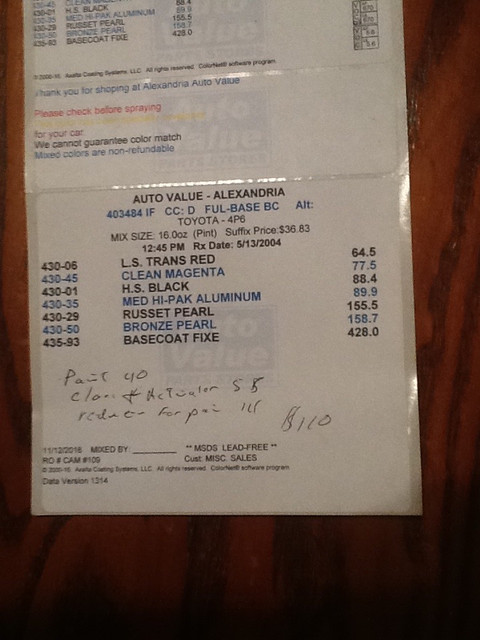 430-45 CLEAN MAGENTA
430-01 H.S. BLACK 88.4
430-35 MED HI-PAK ALUMINUM 89.9
430-29 RUSSET PEARL 155.5
430-50 BRONZE PEARL 158.7
435-93 BASECOAT FIXE 428.0
© 2000-10. Axalta Coating Systems, LLC All rights reserved. ColorNet® software program
Thank you for shoping at Alexandria Auto Value
Please check before spraying
for your car.
We cannot guarantee color match
Mixed colors are non-refundable
AUTO VALUE - ALEXANDRIA
403484 IF CC: D FUL-BASE BC Alt:
TOYOTA - 4P6
MIX SIZE: 16.0oz (Pint) Suffix Price:$36.83
12:45 PM Rx Date: 5/13/2004
430-06 L.S. TRANS RED 64.5
430-45 CLEAN MAGENTA 77.5
430-01 H.S. BLACK 88.4
430-35 MED HI-PAK ALUMINUM 89.9
430-29 RUSSET PEARL 155.5
430-50 BRONZE PEARL 158.7
435-93 BASECOAT FIXE 428.0
Auto
Value
Paint 40
Clear & Activator 55
reducer for
$110
11/12/2016 MIXED BY: ** MSDS LEAD-FREE **
RO # CAM #109 Cust: MISC. SALES
© 2000-10. Axalta Coating Systems, LLC All rights reserved. ColorNet® software program
Data Version 1314